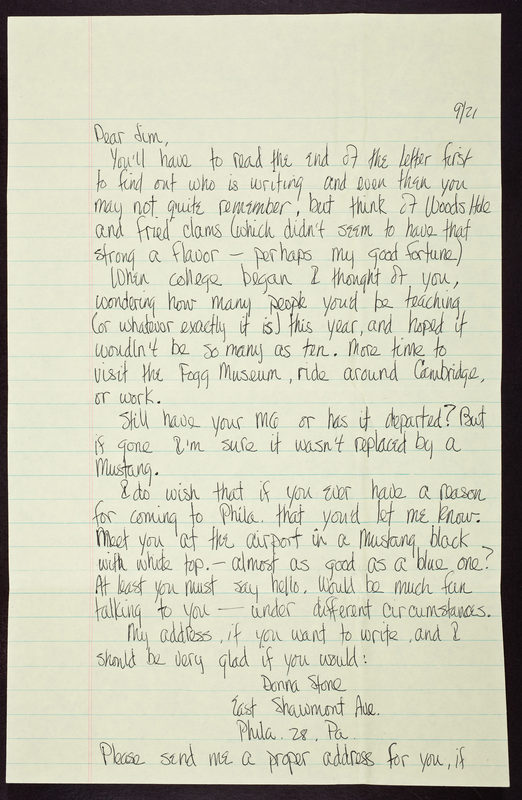 9/21
Dear Jim,
You'll have to read the end of the letter first
to find out who is writing and even then you
may not quite remember, but think of Woods Hole
and fried clams (which didn't seem to have that
strong a flavor — perhaps my good fortune)
When college began I thought of you,
wondering how many people you'd be teaching
(or whatever exactly it is) this year, and hoped it
wouldn't be so many as ten. More time to
visit the Fogg Museum, ride around Cambridge,
or work.
Still have your MG or has it departed? But
if gone I'm sure it wasn't replaced by a
Mustang.
I do wish that if you ever have a reason
for coming to Phila. that you'd let me know.
Meet you at the airport in a Mustang black
with white top. — almost as good as a blue one?
At least you must say hello. Would be much fun
talking to you — under different circumstances.
My address, if you want to write, and I
should be very glad if you would:
Donna Stone
East Shawmont Ave.
Phila. 28, Pa.
Please send me a proper address for you, if